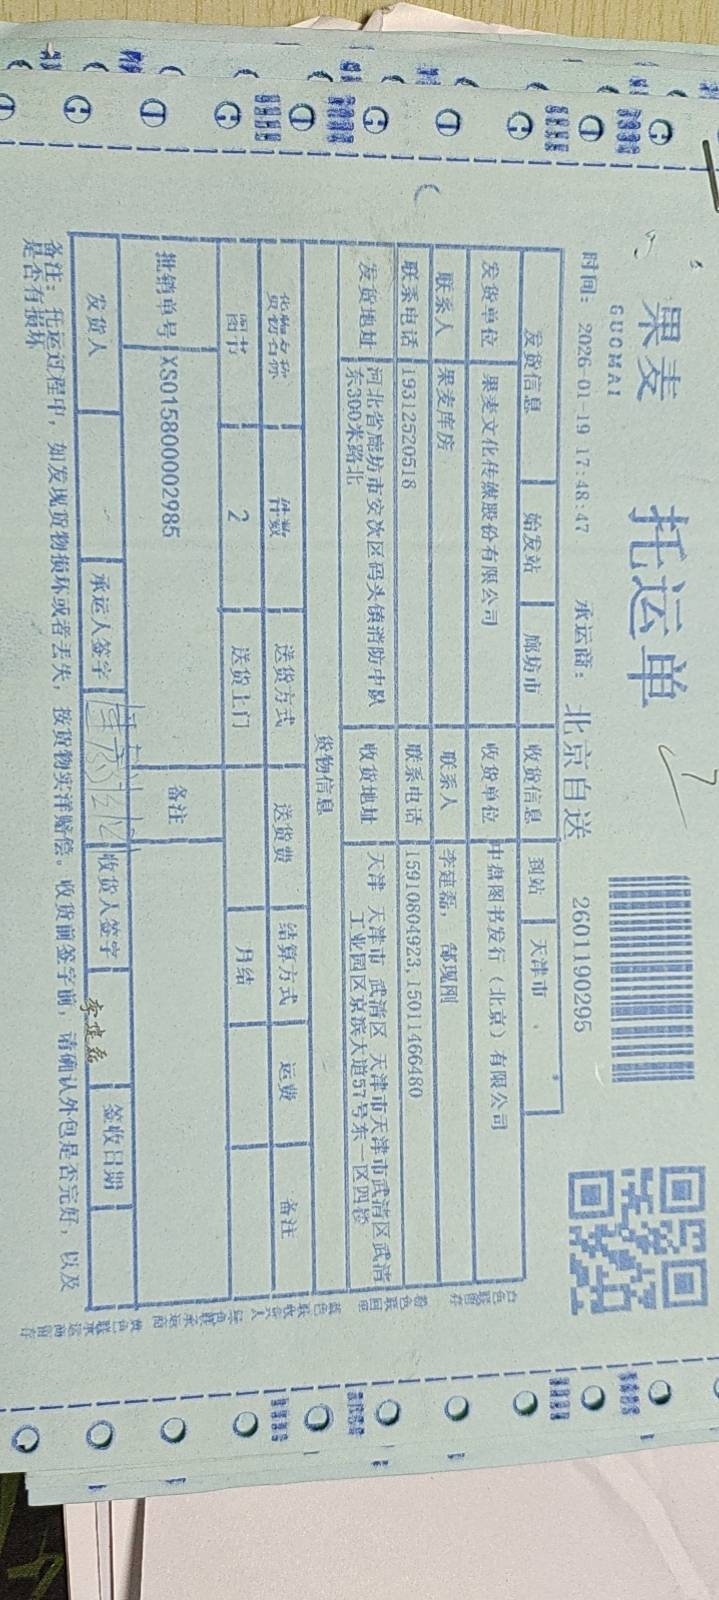 果麦
GUOMAI
托运单
时间: 2026-01-19 17:48:47 承运商: 北京自送 2601190295
发货信息 始发站 廊坊市 收货信息 到站 天津市
发货单位 果麦文化传媒股份有限公司 收货单位 中盘图书发行（北京）有限公司
联系人 果麦库房 联系人 李建磊, 郜现刚
联系电话 19312520518 联系电话 15910804923,15011466480
发货地址 河北省廊坊市安次区码头镇消防中队东300米路北 收货地址 天津 天津市 武清区 天津市天津市武清区武清工业园区京滨大道57号东一区四楼
货物信息
货物名称 件数 送货方式 送货费 结算方式 运费 备注
图书 2 送货上门 月结
批销单号 XS015800002985 备注
发货人 承运人签字 收货人签字 李建磊 签收日期
备注: 托运过程中, 如发现货物损坏或者丢失, 按货物实洋赔偿。收货前签字前, 请确认外包是否完好, 以及
是否有损坏